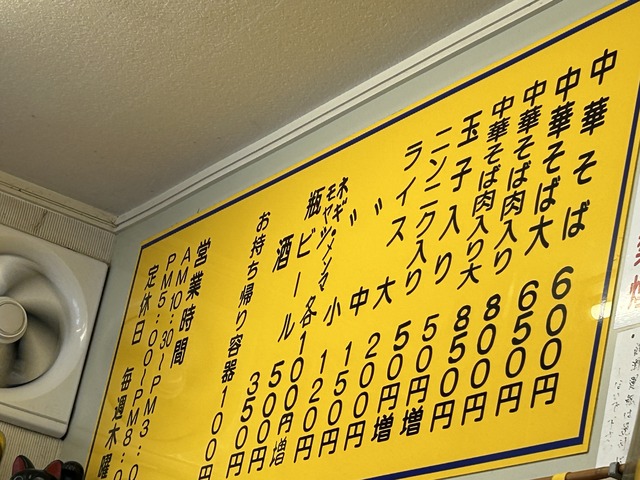 中華そば 600円
中華そば大 650円
中華そば肉入り 800円
中華そば肉入り大 850円
玉子入り 50円増
ニンニク入り 50円増
ライス 大 200円
〃 中 150円
〃 小 120円
ネギ・モヤシ・メンマ各100円増
瓶ビール 500円
酒 350円
お持ち帰り容器100円
営業時間
AM10:30〜PM3:0
PM5:00〜PM8:0
定休日 毎週木曜